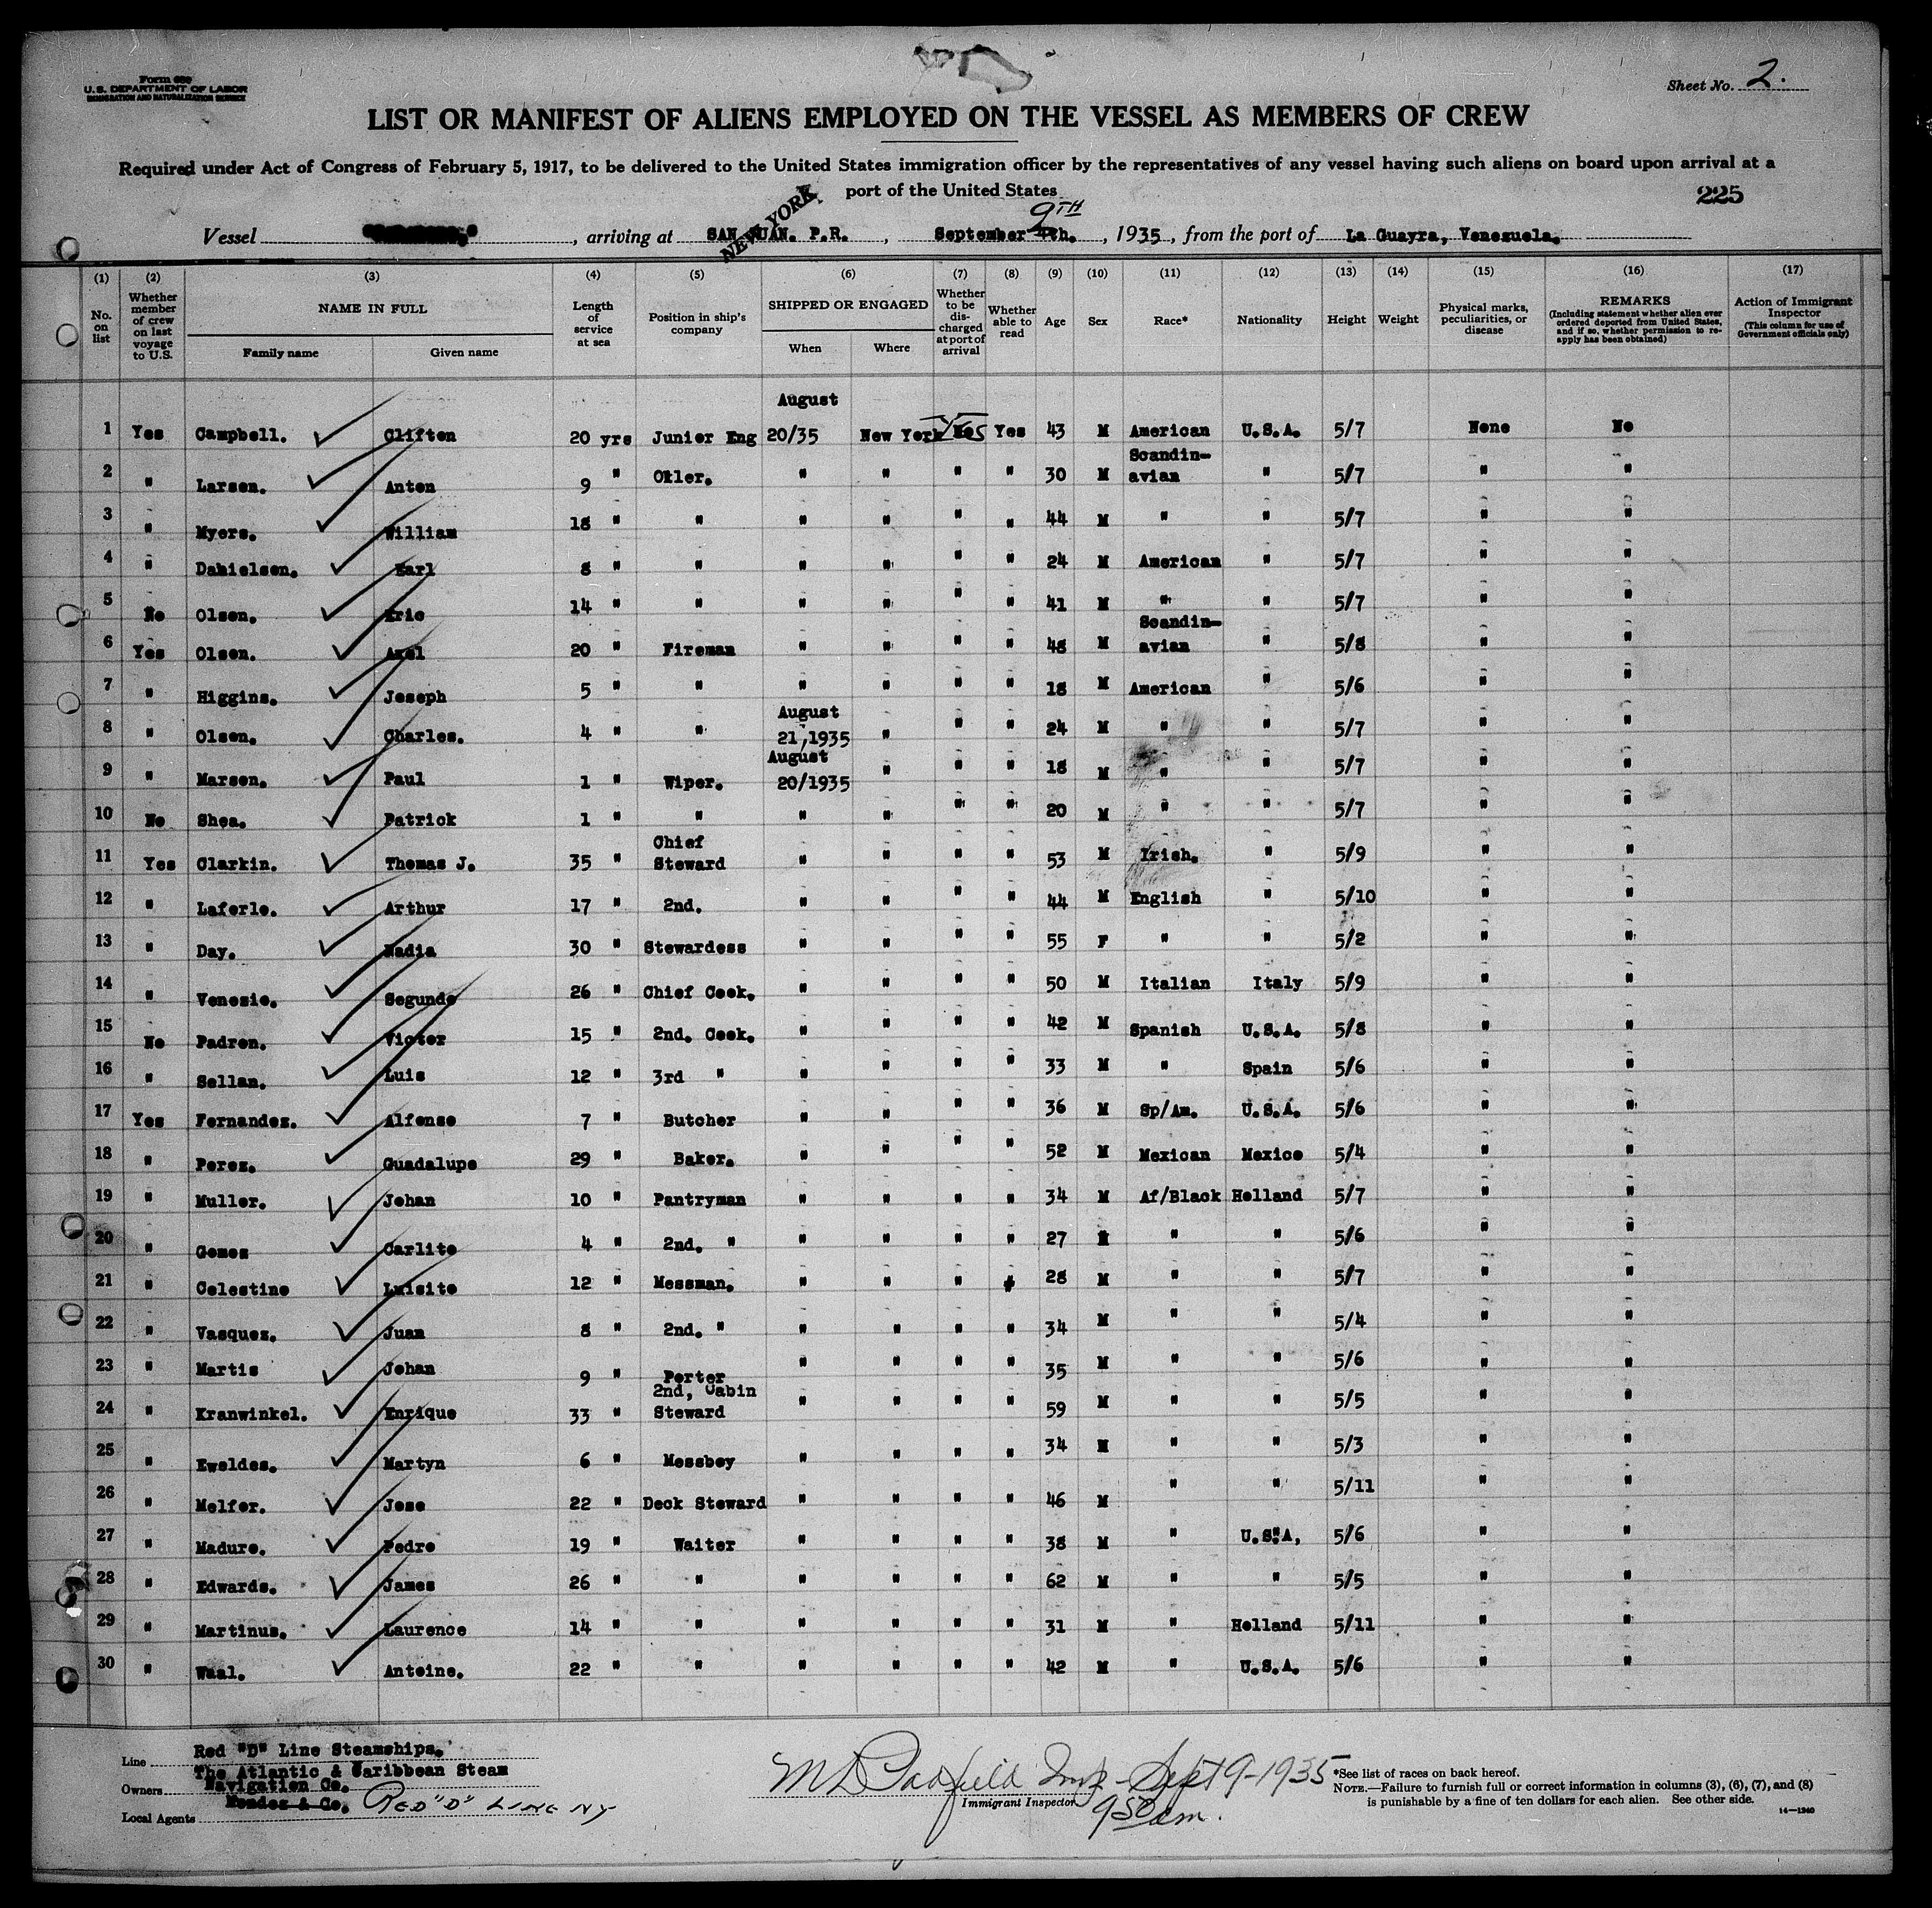 Form 680
U. S. DEPARTMENT OF LABOR
IMMIGRATION AND NATURALIZATION SERVICE
Sheet No. 2.
LIST OR MANIFEST OF ALIENS EMPLOYED ON THE VESSEL AS MEMBERS OF CREW
Required under Act of Congress of February 5, 1917, to be delivered to the United States immigration officer by the representatives of any vessel having such aliens on board upon arrival at a
port of the United States
225
NEW YORK
9TH
Vessel , arriving at SAN JUAN. P.R. , September th. , 1935, from the port of La Guayra, Venezuela.
(1) (2) (3) (4) (5) (6) (7) (8) (9) (10) (11) (12) (13) (14) (15) (16) (17)
No. on list Whether member of crew on last voyage to U.S. NAME IN FULL Family name Given name Length of service at sea Position in ship's company SHIPPED OR ENGAGED When Where Whether to be discharged at port of arrival Whether able to read Age Sex Race* Nationality Height Weight Physical marks, peculiarities, or disease REMARKS (Including statement whether alien ever ordered deported from United States, and if so, whether permission to re-apply has been obtained) Action of Immigrant Inspector (This column for use of Government officials only)
August
1 Yes Campbell. Clifton 20 yrs Junior Eng 20/35 New York Yes No Yes 43 M American U.S.A. 5/7 None No
2 " Larsen. Anton 9 " Oiler. " " " " 30 M Scandin-avian " 5/7 " "
3 " Myers. William 18 " " " " " " 44 M " " 5/7 " "
4 " Danielsen. Earl 8 " " " " " " 24 M American " 5/7 " "
5 No Olsen. Eric 14 " " " " " " 41 M " " 5/7 " "
6 Yes Olsen. Axel 20 " Fireman " " " " 48 M Scandin-avian " 5/8 " "
7 " Higgins. Joseph 5 " " " " " " 18 M American " 5/6 " "
8 " Olsen. Charles. 4 " " August 21,1935 " " " 24 M " " 5/7 " "
9 " Marsen. Paul 1 " Wiper. August 20/1935 " " " 18 M " " 5/7 " "
10 No Shea. Patrick 1 " " " " " " 20 M " " 5/7 " "
11 Yes Clarkin. Thomas J. 35 " Chief Steward " " " " 53 M Irish. " 5/9 " "
12 " Laferle. Arthur 17 " 2nd. " " " " 44 M English " 5/10 " "
13 " Day. Nadia 30 " Stewardess " " " " 55 F " " 5/2 " "
14 " Venezio. Segundo 26 " Chief Cook. " " " " 50 M Italian Italy 5/9 " "
15 No Padron. Victor 15 " 2nd. Cook. " " " " 42 M Spanish U.S.A. 5/8 " "
16 " Sellan. Luis 12 " 3rd " " " " " 33 M " Spain 5/6 " "
17 Yes Fernandez. Alfonso 7 " Butcher " " " " 36 M Sp/Am. U.S.A. 5/6 " "
18 " Perez. Guadalupe 29 " Baker. " " " " 52 M Mexican Mexico 5/4 " "
19 " Muller. Johan 10 " Pantryman " " " " 34 M Af/Black Holland 5/7 " "
20 " Gomez Carlito 4 " 2nd. " " " " " 27 M " " 5/6 " "
21 " Celestino Luisito 12 " Messman. " " " " 28 M " " 5/7 " "
22 " Vasquez. Juan 8 " 2nd. " " " " " 34 M " " 5/4 " "
23 " Martis Johan 9 " Porter " " " " 35 M " " 5/6 " "
24 " Kranwinkel. Enrique 33 " 2nd, Cabin Steward " " " " 59 M " " 5/5 " "
25 " Eweldes. Martyn 6 " Messboy " " " " 34 M " " 5/3 " "
26 " Melfer. Jose 22 " Deck Steward " " " " 46 M " " 5/11 " "
27 " Maduro. Pedro 19 " Waiter " " " " 38 M " U.S.A, 5/6 " "
28 " Edwards. James 26 " " " " " " 62 M " " 5/5 " "
29 " Martinus. Laurence 14 " " " " " " 31 M " Holland 5/11 " "
30 " Waal. Antoine. 22 " " " " " " 42 M " U.S.A. 5/6 " "
Line Red "D" Line Steamships.
Owners The Atlantic & Caribbean Steam Navigation Co.
Local Agents Mendez & Co. RED "D" LINE NY
Insp - Sept 9-1935
Immigrant Inspector
9 50 am.
*See list of races on back hereof.
NOTE.—Failure to furnish full or correct information in columns (3), (6), (7), and (8)
is punishable by a fine of ten dollars for each alien. See other side.
14—1240